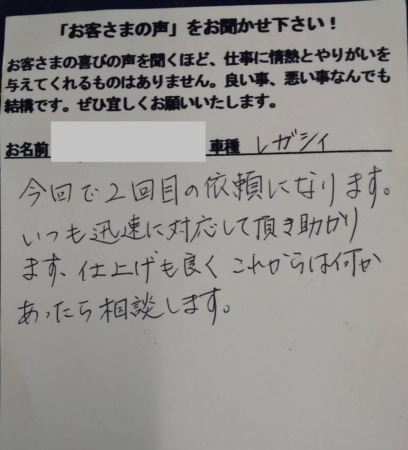 「お客さまの声」をお聞かせ下さい！
お客さまの喜びの声を聞くほど、仕事に情熱とやりがいを
与えてくれるものはありません。良い事、悪い事なんでも
結構です。ぜひ宜しくお願いいたします。
お名前 車種 レガシィ
今回で2回目の依頼になります。
いつも迅速に対応して頂き助かり
ます、仕上げも良く これからは何か
あったら相談します。